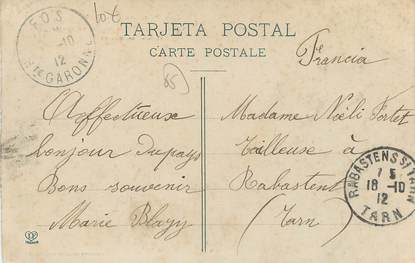 TARJETA POSTAL
CARTE POSTALE
FOS
-10
12
Hte GARONNE
lot
Francia
85
Affectueux
bonjour du pays
Bons souvenir
Marie Blagy
Madame Noëli Fortet
Tailleuse à
Rabastens
(Tarn)
RABASTENS S/ TARN
18 -10
12
TARN